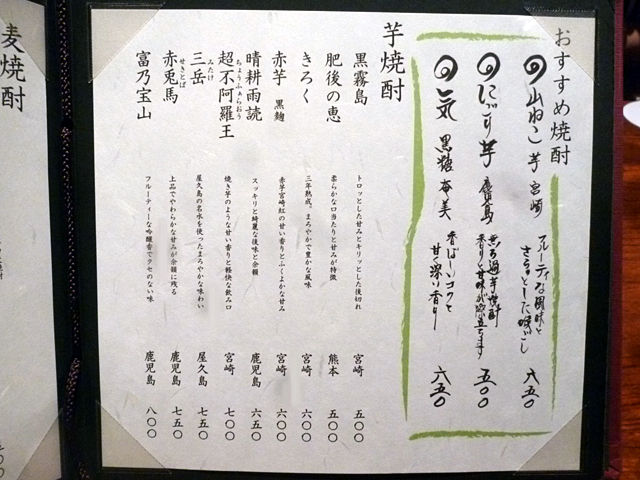 おすすめ焼酎
山ねこ 芋 宮崎 フルーティな風味と さらっとした喉ごし 六五〇
にごり芋 鹿児島 無ろ過芋焼酎 香りと甘味が際立ちます 五〇〇
一気 黒糖 奄美 香ばしいコクと 甘く深い香り 六五〇
芋焼酎
黒霧島 トロッとした甘みとキリッとした後切れ 宮崎 五〇〇
肥後の恵 柔らかな口当たりと甘みが特徴 熊本 五〇〇
きろく 三年熟成。まろやかで豊かな風味 宮崎 六〇〇
赤芋 黒麹 赤芋宮崎紅の甘い香りとふくよかな甘み 宮崎 六〇〇
晴耕雨読 スッキリと綺麗な後味と余韻 鹿児島 六五〇
超不阿羅王 ちょうふぁらおう 焼き芋のような甘い香りと軽快な飲み口 宮崎 七〇〇
三岳 みたけ 屋久島の名水を使ったまろやかな味わい 屋久島 七五〇
赤兎馬 せきとば 上品でやわらかな甘みが余韻に残る 鹿児島 七五〇
富乃宝山 フルーティーな吟醸香でクセのない味 鹿児島 八〇〇
麦焼酎